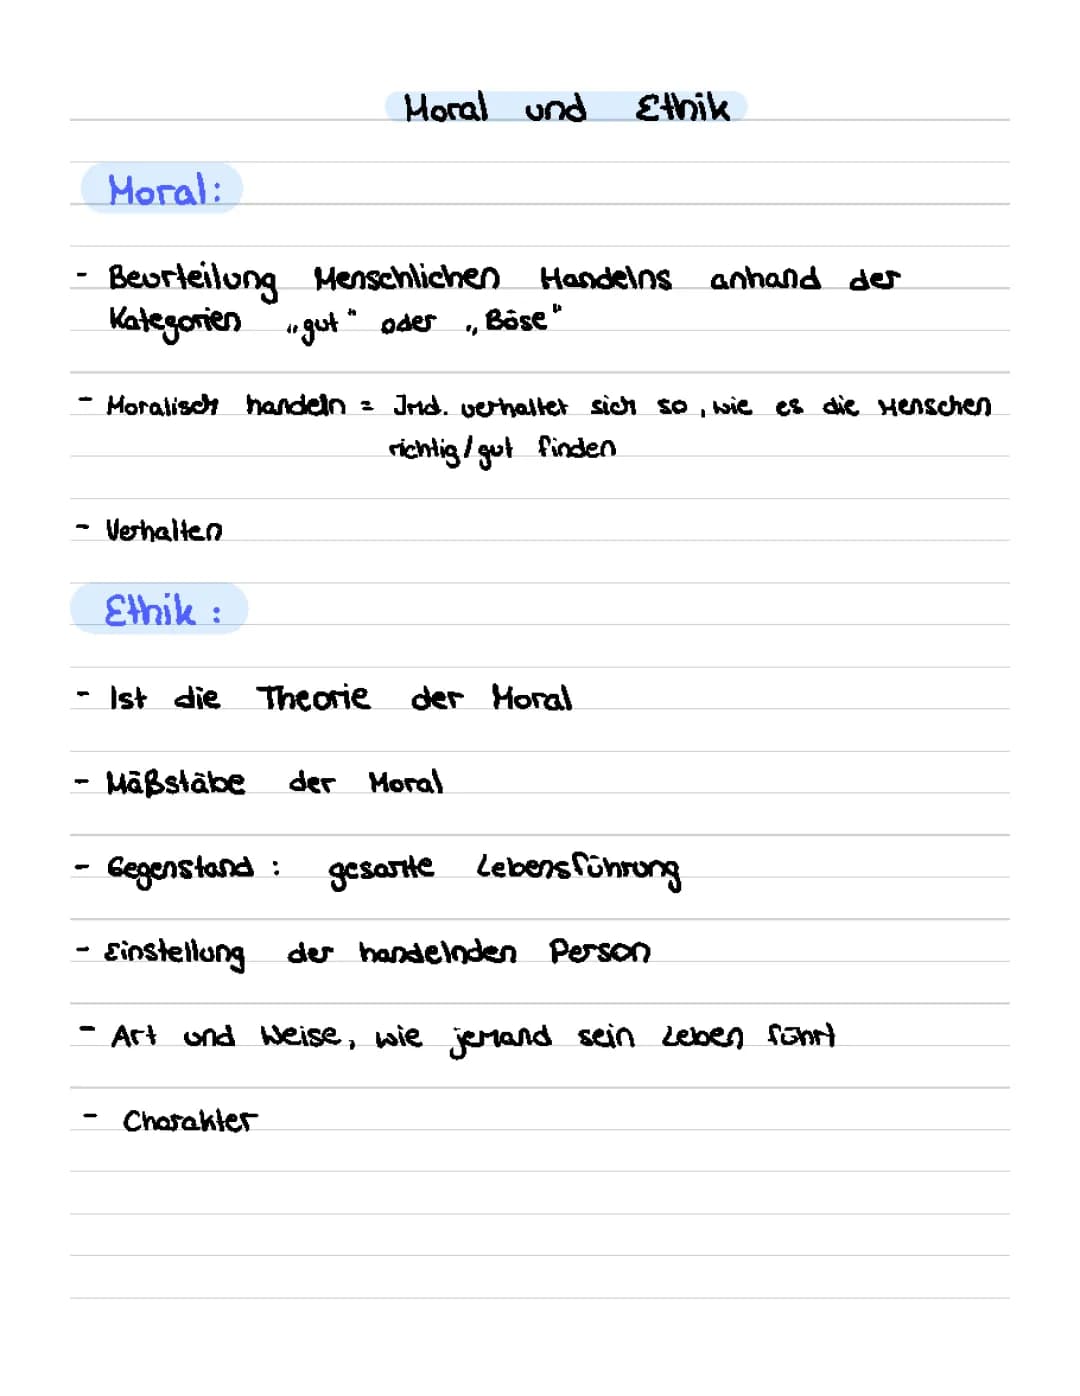 Moral und Ethik
Moral:
- Beurteilung Menschlichen Handelns anhand der
Kategorien „gut" oder „Böse"
- Moralisch handeln = Ind. verhaltet sich so, wie es die Menschen
richtig/gut finden
- Verhalten
Ethik:
- Ist die Theorie der Moral
- Mäßstäbe der Moral
- Gegenstand: gesamte Lebensführung
- Einstellung der handelnden Person
- Art und Weise, wie jemand sein Leben führt
- Charakter